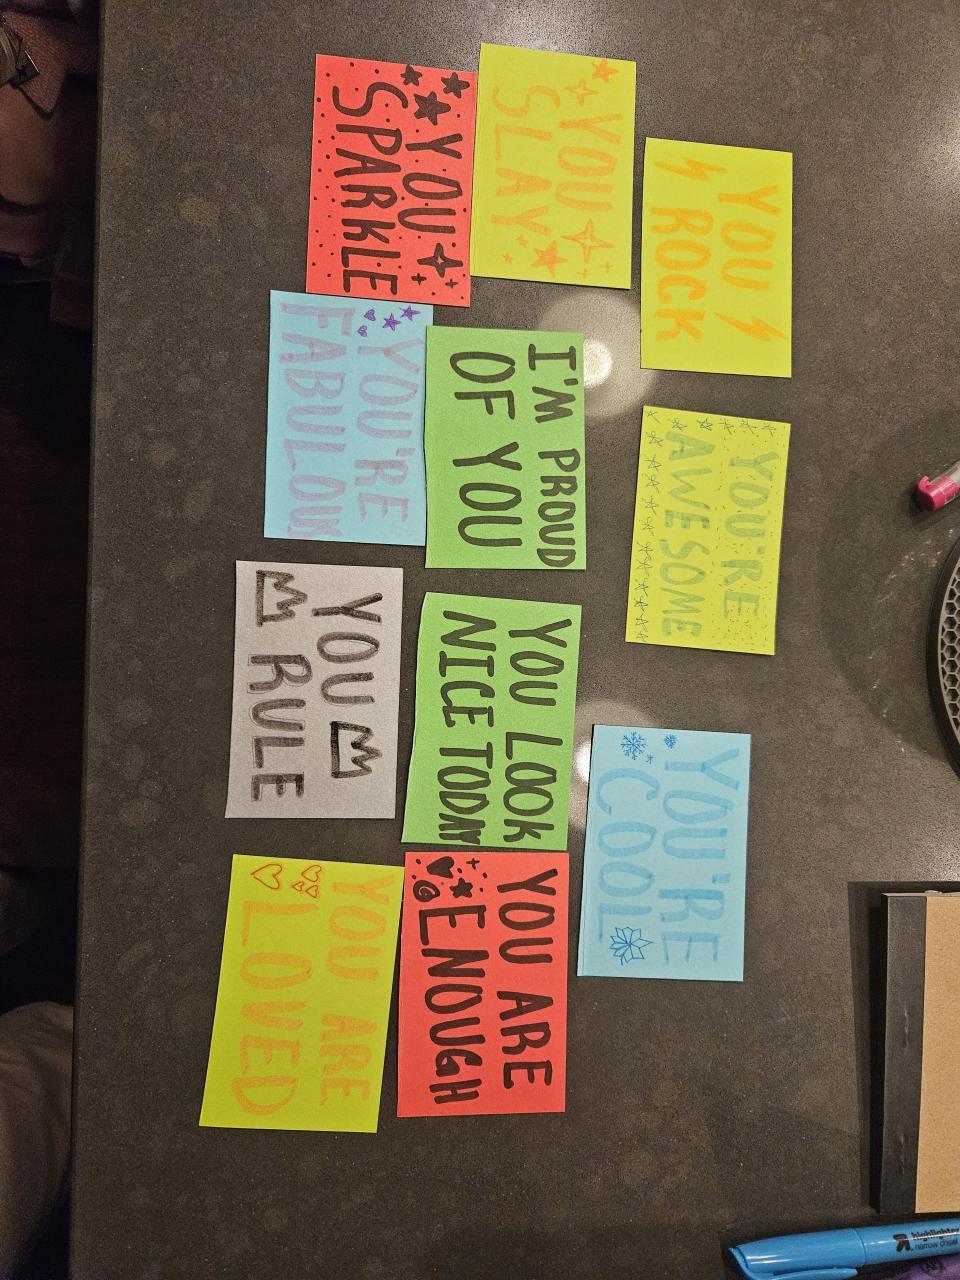 YOU
ROCK
YOU'RE
AWESOME
YOU'RE
COOL
YOU
SLAY
I'M PROUD
OF YOU
YOU LOOK
NICE TODAY
YOU ARE
ENOUGH
YOU
SPARKLE
YOU'RE
FABULOUS
YOU
RULE
YOU ARE
LOVED
highlighter
narrow chisel